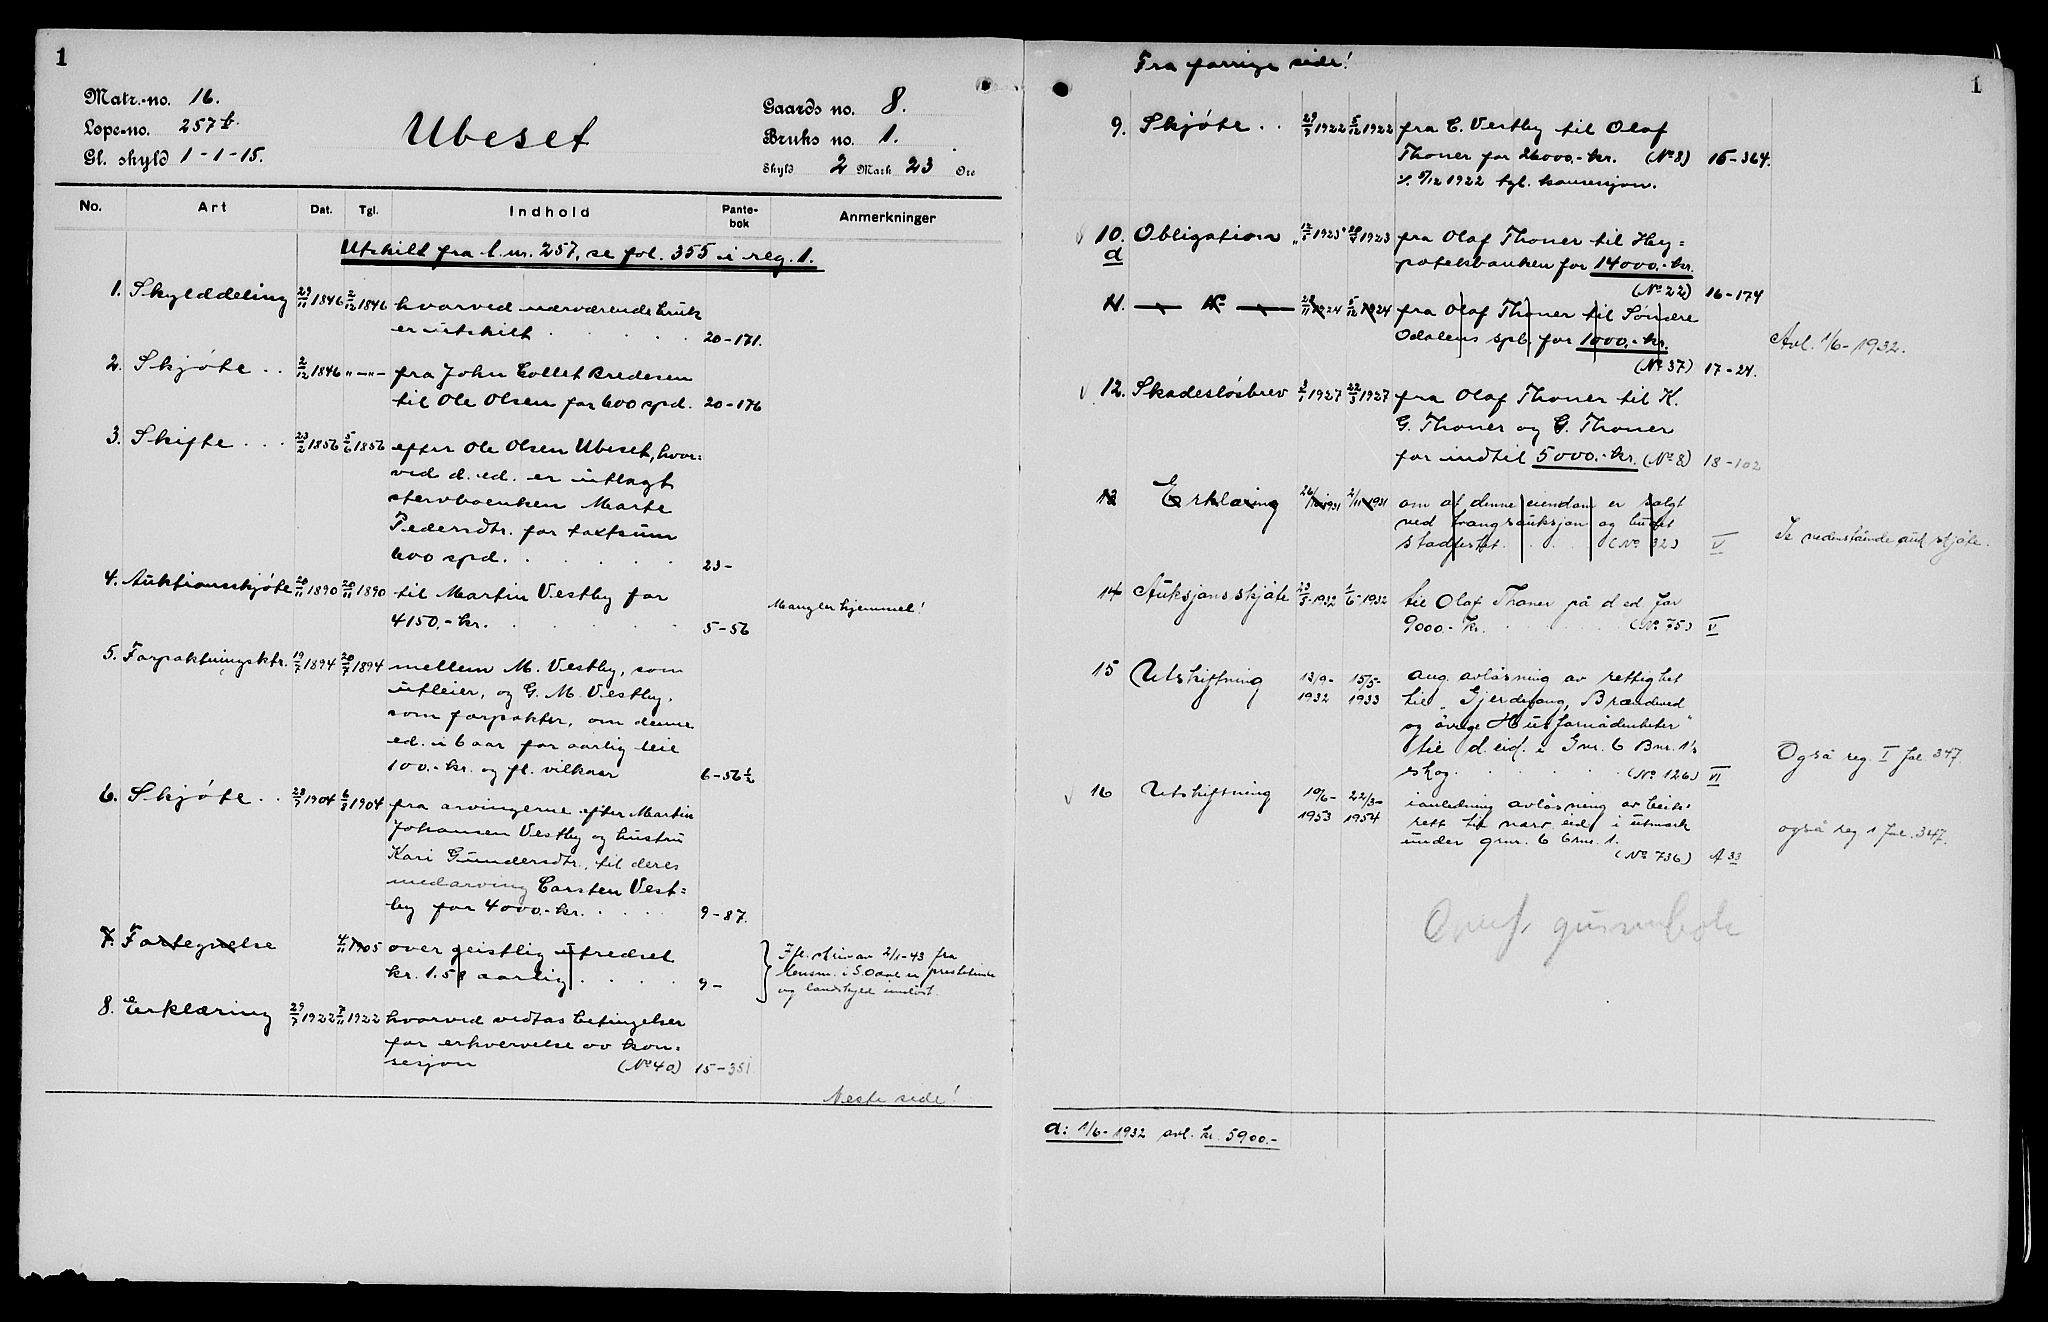 1
Matr.-no. 16.
Løpe-no. 257 b.
Gl. skyld 1-1-15.
Ubeset
Gaards no. 8.
Bruks no. 1.
Skyld 2 Mark 23 Øre
No. Art Dat. Tgl. Indhold Pante-bok Anmerkninger
Utskilt fra l.nr. 257, se fol. 355 i reg. 1.
1. Skylddeling 29/11 1846 2/12 1846 hvorved nærværende bruk
er utskilt . . . . 20-171.
2. Skjøte . . 2/12 1846 "—"— fra John Collet Bredesen
til Ole Olsen for 600 spd. 20-176
3. Skifte . . . 23/2 1856 5/6 1856 efter Ole Olsen Ubeset, hvor=
ved d. ed. er utlagt
stervboenken Marte
Pedersdtr. for taxtsum
600 spd. . . . . . . 23-
4. Auktionsskjøte 20/11 1890 20/11 1890 til Martin Vestby for
Mangler hjemmel!
4150.-kr. . . . . . 5-56
5. Forpaktningsktr. 19/7 1894 20/7 1894 mellem M. Vestby, som
utleier, og G. M. Vestby,
som forpakter, om denne
ed. i 6 aar for aarlig leie
100.-kr. og fl. vilkaar 6-56½
6. Skjøte . . 28/7 1904 6/8 1904 fra arvingerne efter Martin
Johansen Vestby og hustru
Kari Gundersdtr. til deres
medarving Carsten Vest=
by for 4000.-kr. . . . . 9-87.
7. Fortegnelse 4/11 1905 over geistlig utredsel
kr. 1.58 aarlig . . . . 9-
Ifl. skriv av 2/1-43 fra
lensm. i S. Odal er prestetiende
og landskyld innløst.
8. Erklæring 29/7 1922 7/11 1922 hvorved vedtas betingelser
for erhvervelse av kon=
sesjon (No 40) 15-351
Neste side!
Fra forrige side!
1
9. Skjøte . . 29/7 1922 5/12 1922 fra C. Vestby til Olaf
Thoner for 26000.-kr. (No 8) 15-364.
5/12 1922 tgl. konsesjon.
10. Obligation 12/7 1923 1923 fra Olaf Thoner til Hy=
a
potekbanken for 14000.-kr.
(No 22) 16-174
11. — — 28/11 1924 5/12 1924 fra Olaf Thoner til Søndre
Odalens spb. for 1000.-kr.
Avl. 1/6-1932.
(No 37) 17-24.
12. Skadesløsbrev 3/1 1927 22/3 1927 fra Olaf Thoner til K.
G. Thoner og G. Thoner
for indtil 5000.-kr. (No 8) 18-102
13 Erklæring 26/10 1931 2/11 1931 om at denne eiendom er solgt
ved tvangsauksjon og budet
stadfestet. . . . (No 32) V
Se nedenstående auk skjøte.
14 Auksjonsskjøte 23/5-1932 1/6-1932 til Olaf Thoner på d ed for
9000.- kr. . . . . (No 75) V
15 Utskiftning 13/9-1932 15/5-1933 ang. avløsning av rettighet
til "Gjerdefang, Brændeved
og øvrige Husfornødenheter"
til d. eid. i Gnr. 6 Bnr. 1's
skog. . . . . . (No 126) VI
Også reg. I fol 347.
16 Utskiftning 10/6-1953 22/3-1954 i anledning avløsning av beite-
rett til nærv. eid i utmark
under gnr. 6 bnr. 1.
også reg 1 fol. 347.
(No 736) A 33
a: 1/6-1932 avl. kr. 5900.-